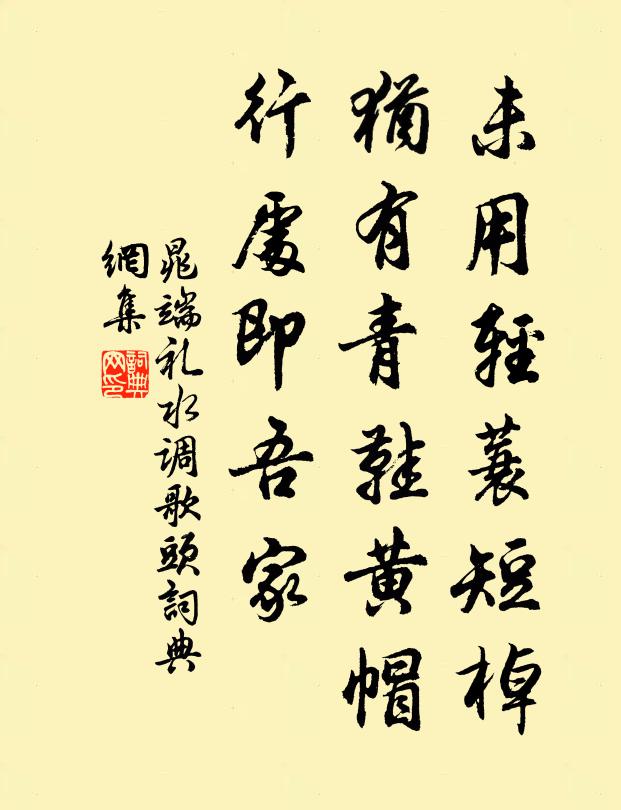 未用輕蓑短棹
猶有青鞋黃帽
行處即吾家
晁端礼水调歌頭詞典
網集
詞典
网印